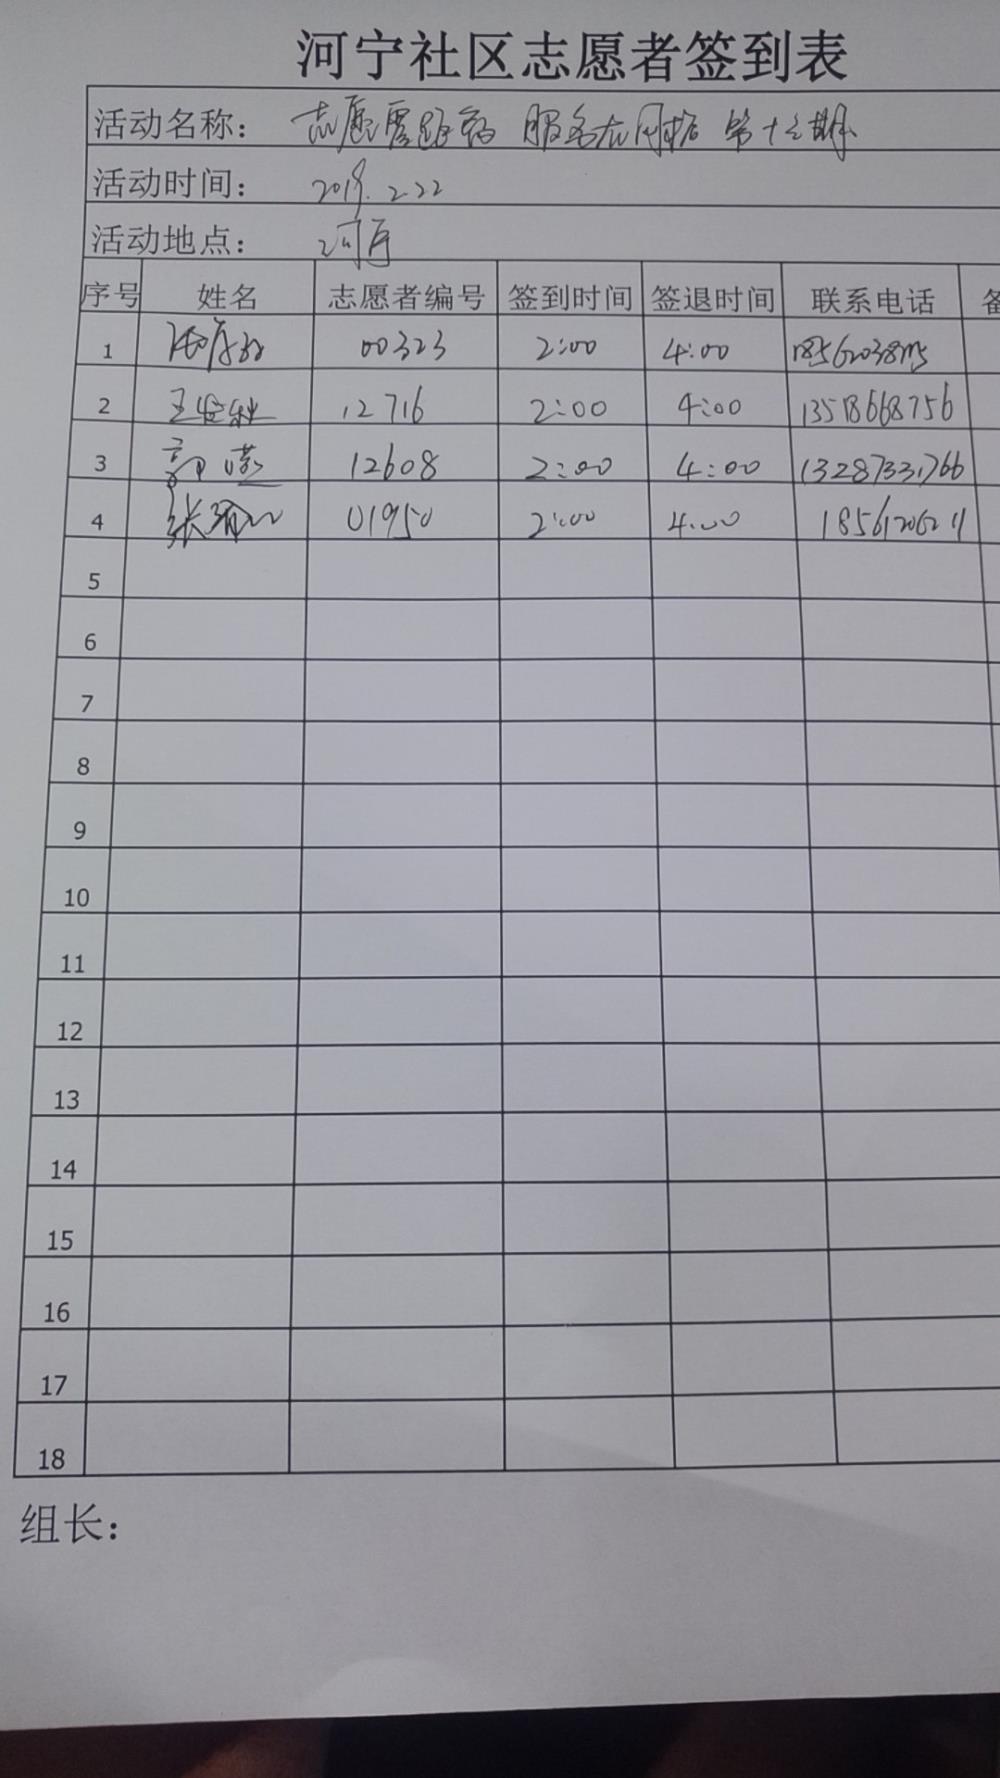 河宁社区志愿者签到表
活动名称： 志愿 服务在网格 第十 期
活动时间： 2019.2.22
活动地点： 河宁
序号 姓名 志愿者编号 签到时间 签退时间 联系电话
1 00323 2:00 4:00
2 王 12716 2:00 4:00 13518668756
3 郭 12608 2:00 4:00 13287331766
4 张 01950 2:00 4:00
5
6
7
8
9
10
11
12
13
14
15
16
17
18
组长：